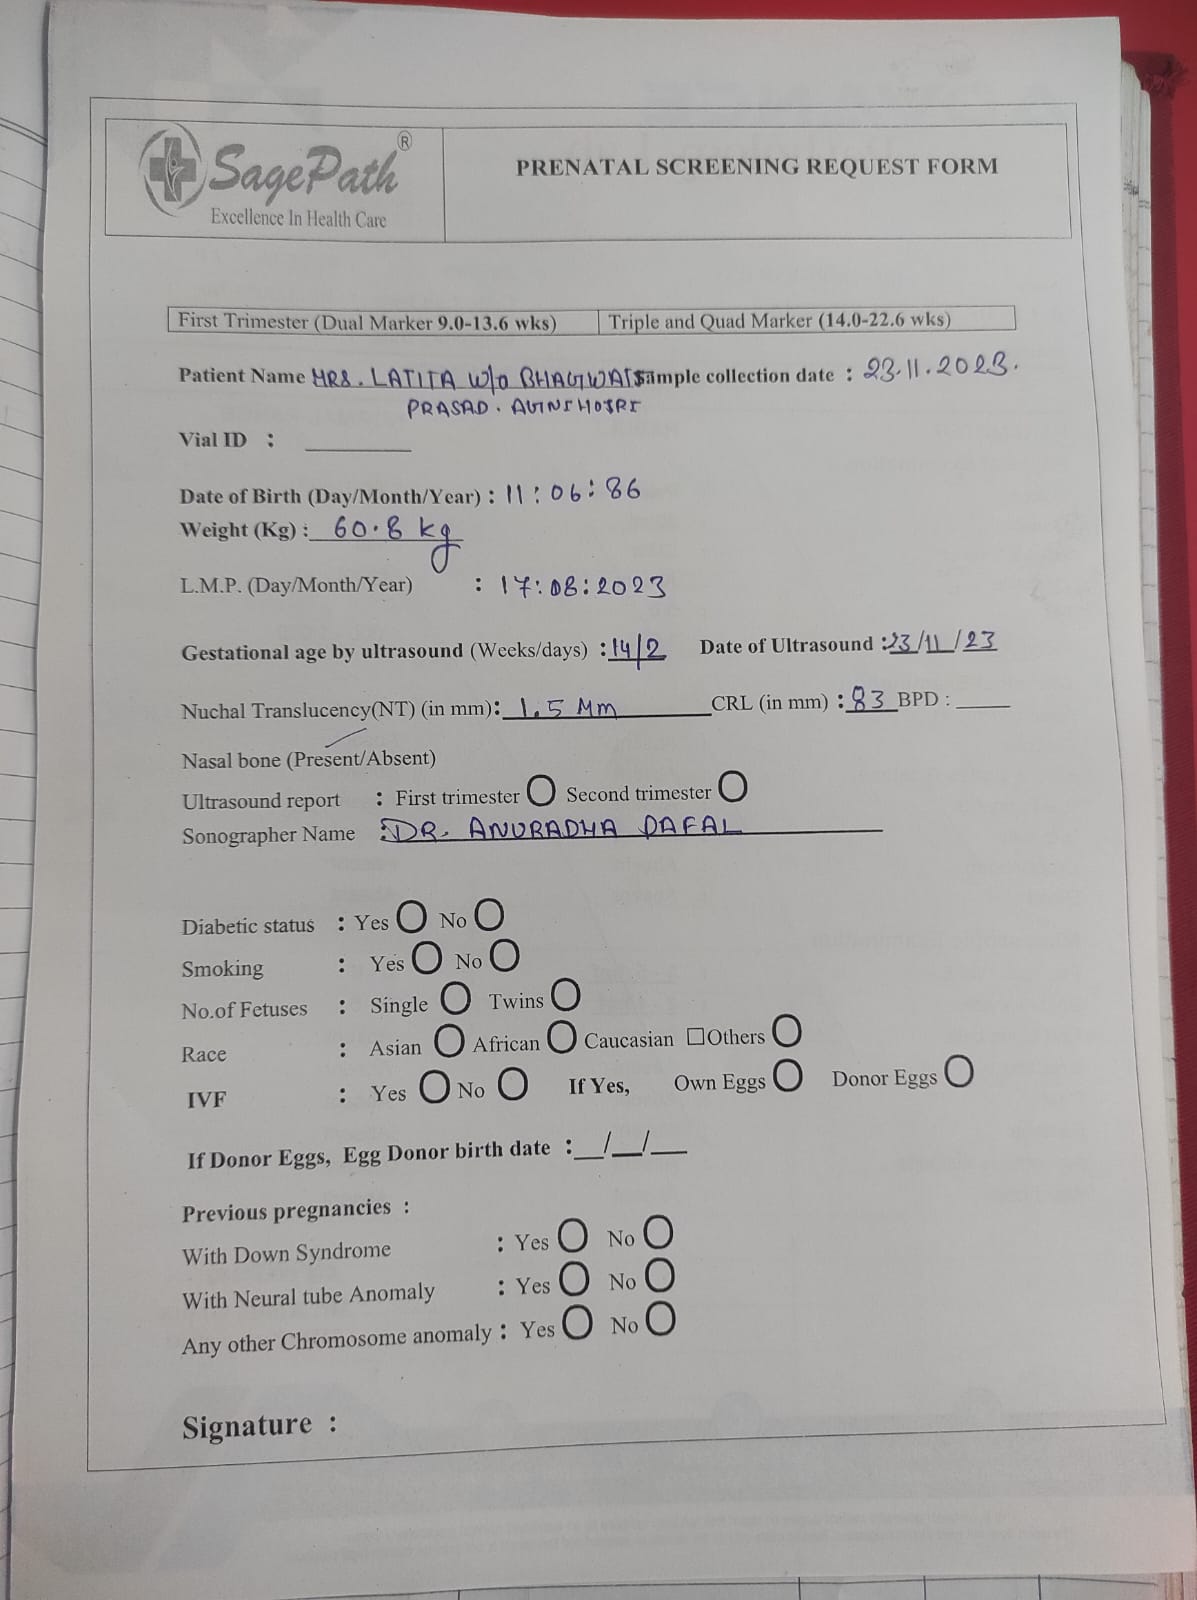 SagePath®
Excellence In Health Care
PRENATAL SCREENING REQUEST FORM
First Trimester (Dual Marker 9.0-13.6 wks) Triple and Quad Marker (14.0-22.6 wks)
Patient Name MRS. LATITA W/o BHAGWAT Sample collection date : 23.11.2023.
PRASAD. AGINIHOTRI
Vial ID :
Date of Birth (Day/Month/Year) : 11:06:86
Weight (Kg) : 60.8 kg
L.M.P. (Day/Month/Year) : 17:08:2023
Gestational age by ultrasound (Weeks/days) : 14/2 Date of Ultrasound : 23/11/23
Nuchal Translucency(NT) (in mm): 1.5 Mm CRL (in mm) : 83 BPD :
Nasal bone (Present/Absent)
Ultrasound report : First trimester Second trimester
Sonographer Name : DR. ANURADHA DAFAL
Diabetic status : Yes No
Smoking : Yes No
No.of Fetuses : Single Twins
Race : Asian African Caucasian Others
IVF : Yes No If Yes, Own Eggs Donor Eggs
If Donor Eggs, Egg Donor birth date : __/__/__
Previous pregnancies :
With Down Syndrome : Yes No
With Neural tube Anomaly : Yes No
Any other Chromosome anomaly : Yes No
Signature :